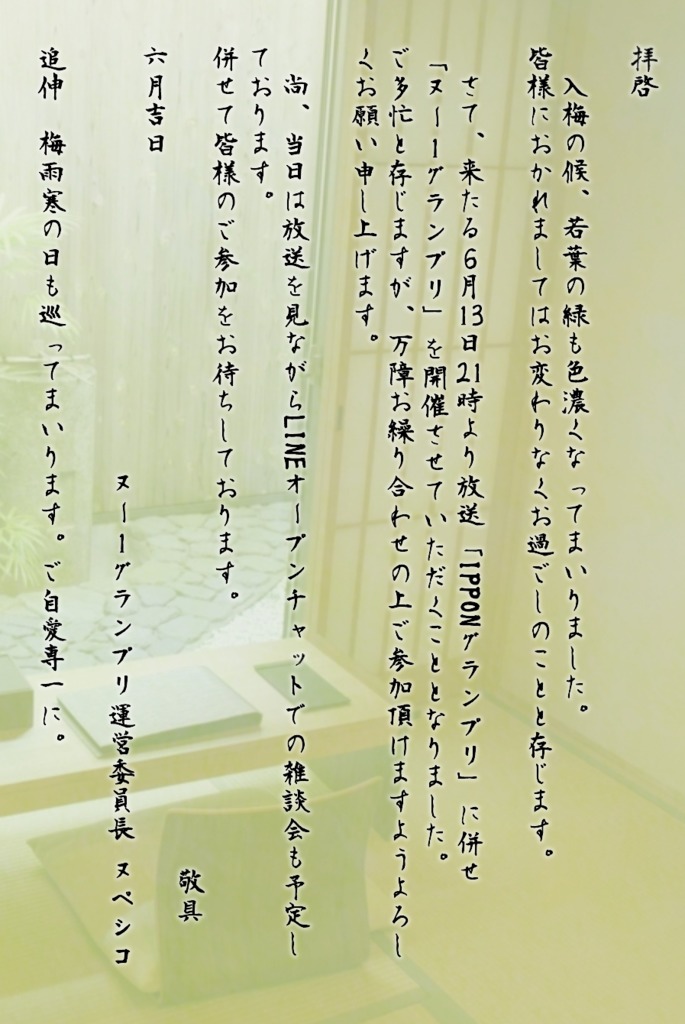 拝啓
入梅の候、若葉の緑も色濃くなってまいりました。
皆様におかれましてはお変わりなくお過ごしのことと存じます。
さて、来たる6月13日21時より放送「IPPONグランプリ」に併せ
「ヌー1グランプリ」を開催させていただくこととなりました。
ご多忙と存じますが、万障お繰り合わせの上ご参加頂けますようよろし
くお願い申し上げます。
尚、当日は放送を見ながらLINEオープンチャットでの雑談会も予定し
ております。
併せて皆様のご参加をお待ちしております。
敬具
六月吉日
ヌー1グランプリ運営委員長 ヌペシコ
追伸　梅雨寒の日も巡ってまいります。ご自愛専一に。